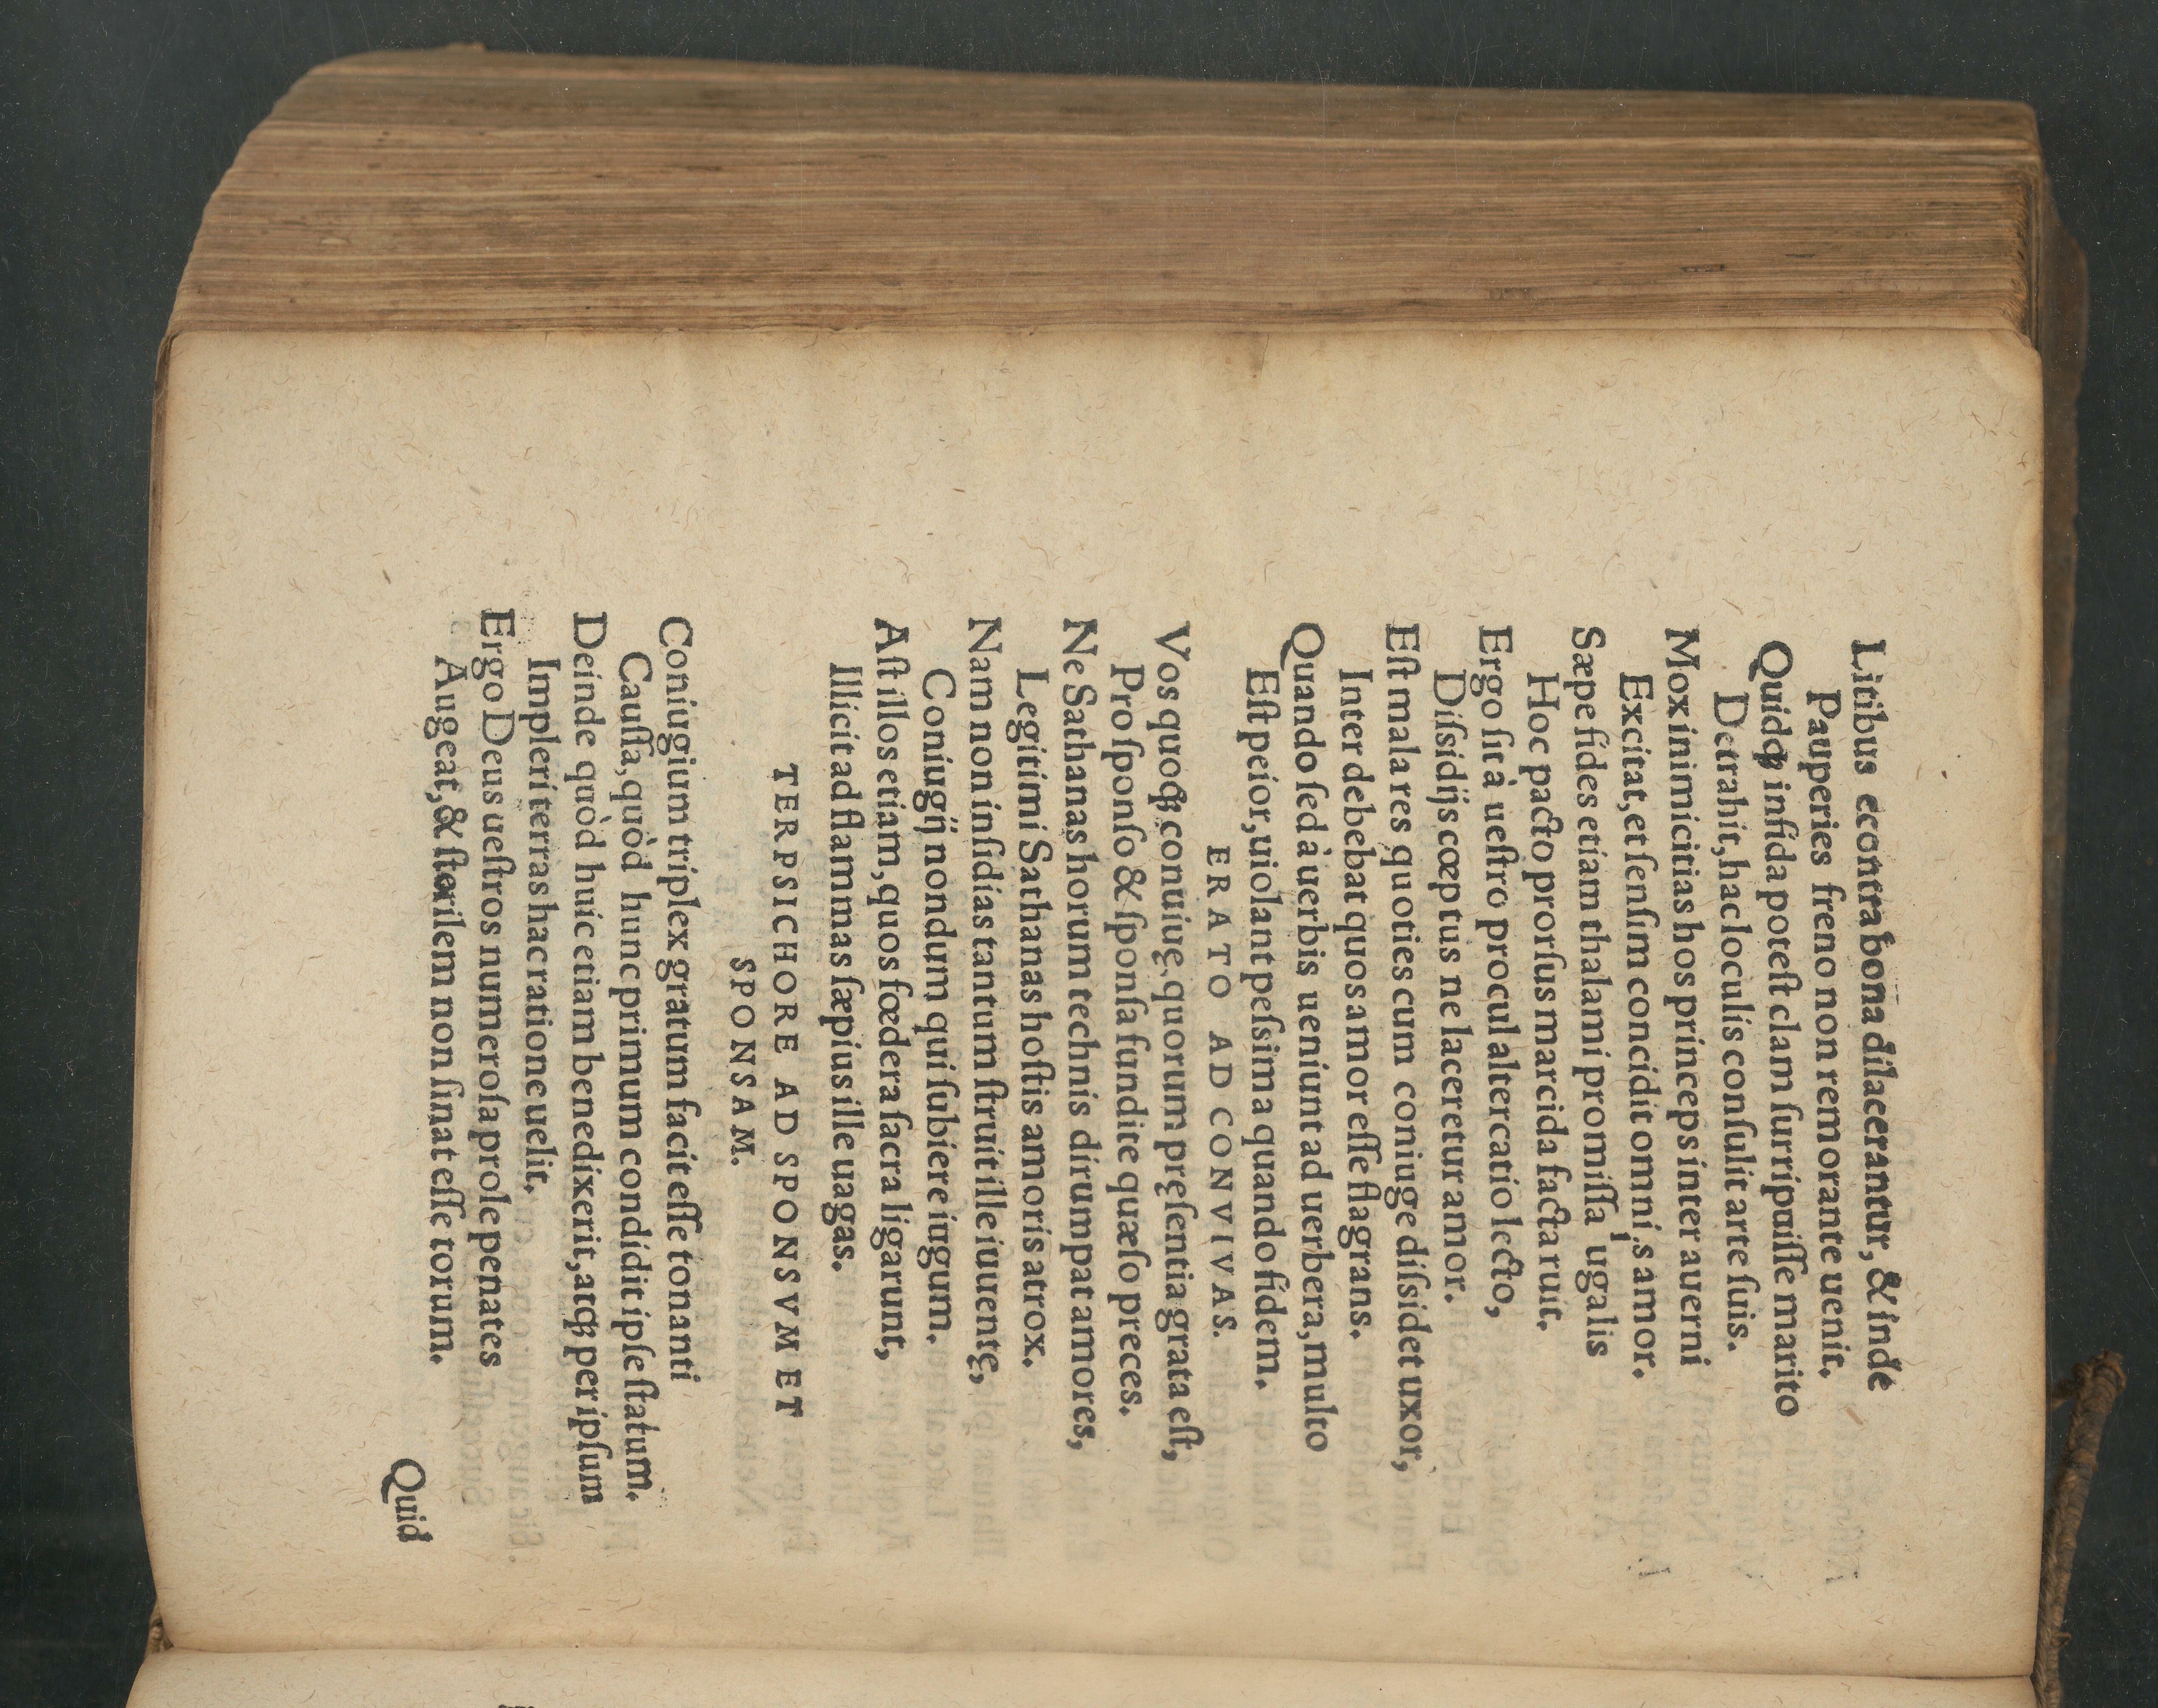 Litibus econtra bona dilacerantur, & inde
Pauperies freno non remorante uenit.
Quidq́ꝫ infida poteſt clam ſurripuiſſe marito
Detrahit, hac loculis conſulit arte ſuis.
Mox inimicitias hos princeps inter auerni
Excitat, et ſenſim concidit omnis amor.
Sæpe fides etiam thalami promiſſa iugalis
Hoc pacto prorſus marcida facta ruit.
Ergo ſit à ueſtro procul altercatio lecto,
Diſsidijs cœptus ne laceretur amor.
Eſt mala res quoties cum coniuge diſsidet uxor,
Inter debebat quos amor eſſe flagrans.
Quando ſed à uerbis ueniunt ad uerbera, multo
Eſt peior, uiolant peſsima quando fidem.
ERATO AD CONVIVAS.
Vos quoqꝫ conuiuę, quorum pręſentia grata eſt,
Pro ſponſo & ſponſa fundite quæſo preces.
Ne Sathanas horum technis dirumpat amores,
Legitimi Sathanas hoſtis amoris atrox.
Nam non inſidias tantum ſtruit ille iuuentę,
Coniugij nondum qui ſubiere iugum.
Aſt illos etiam, quos fœdera ſacra ligarunt,
Illicit ad flammas ſæpius ille uagas.
TERPSICHORE AD SPONSVM ET
SPONSAM.
Coniugium triplex gratum facit eſſe tonanti
Cauſſa, quòd hunc primum condidit ipſe ſtatum.
Deinde quòd huic etiam benedixerit, atqꝫ per ipſum
Impleri terras hac ratione uelit.
Ergo Deus ueſtros numeroſa prole penates
Augeat, & ſterilem non ſinat eſſe torum.
Quid